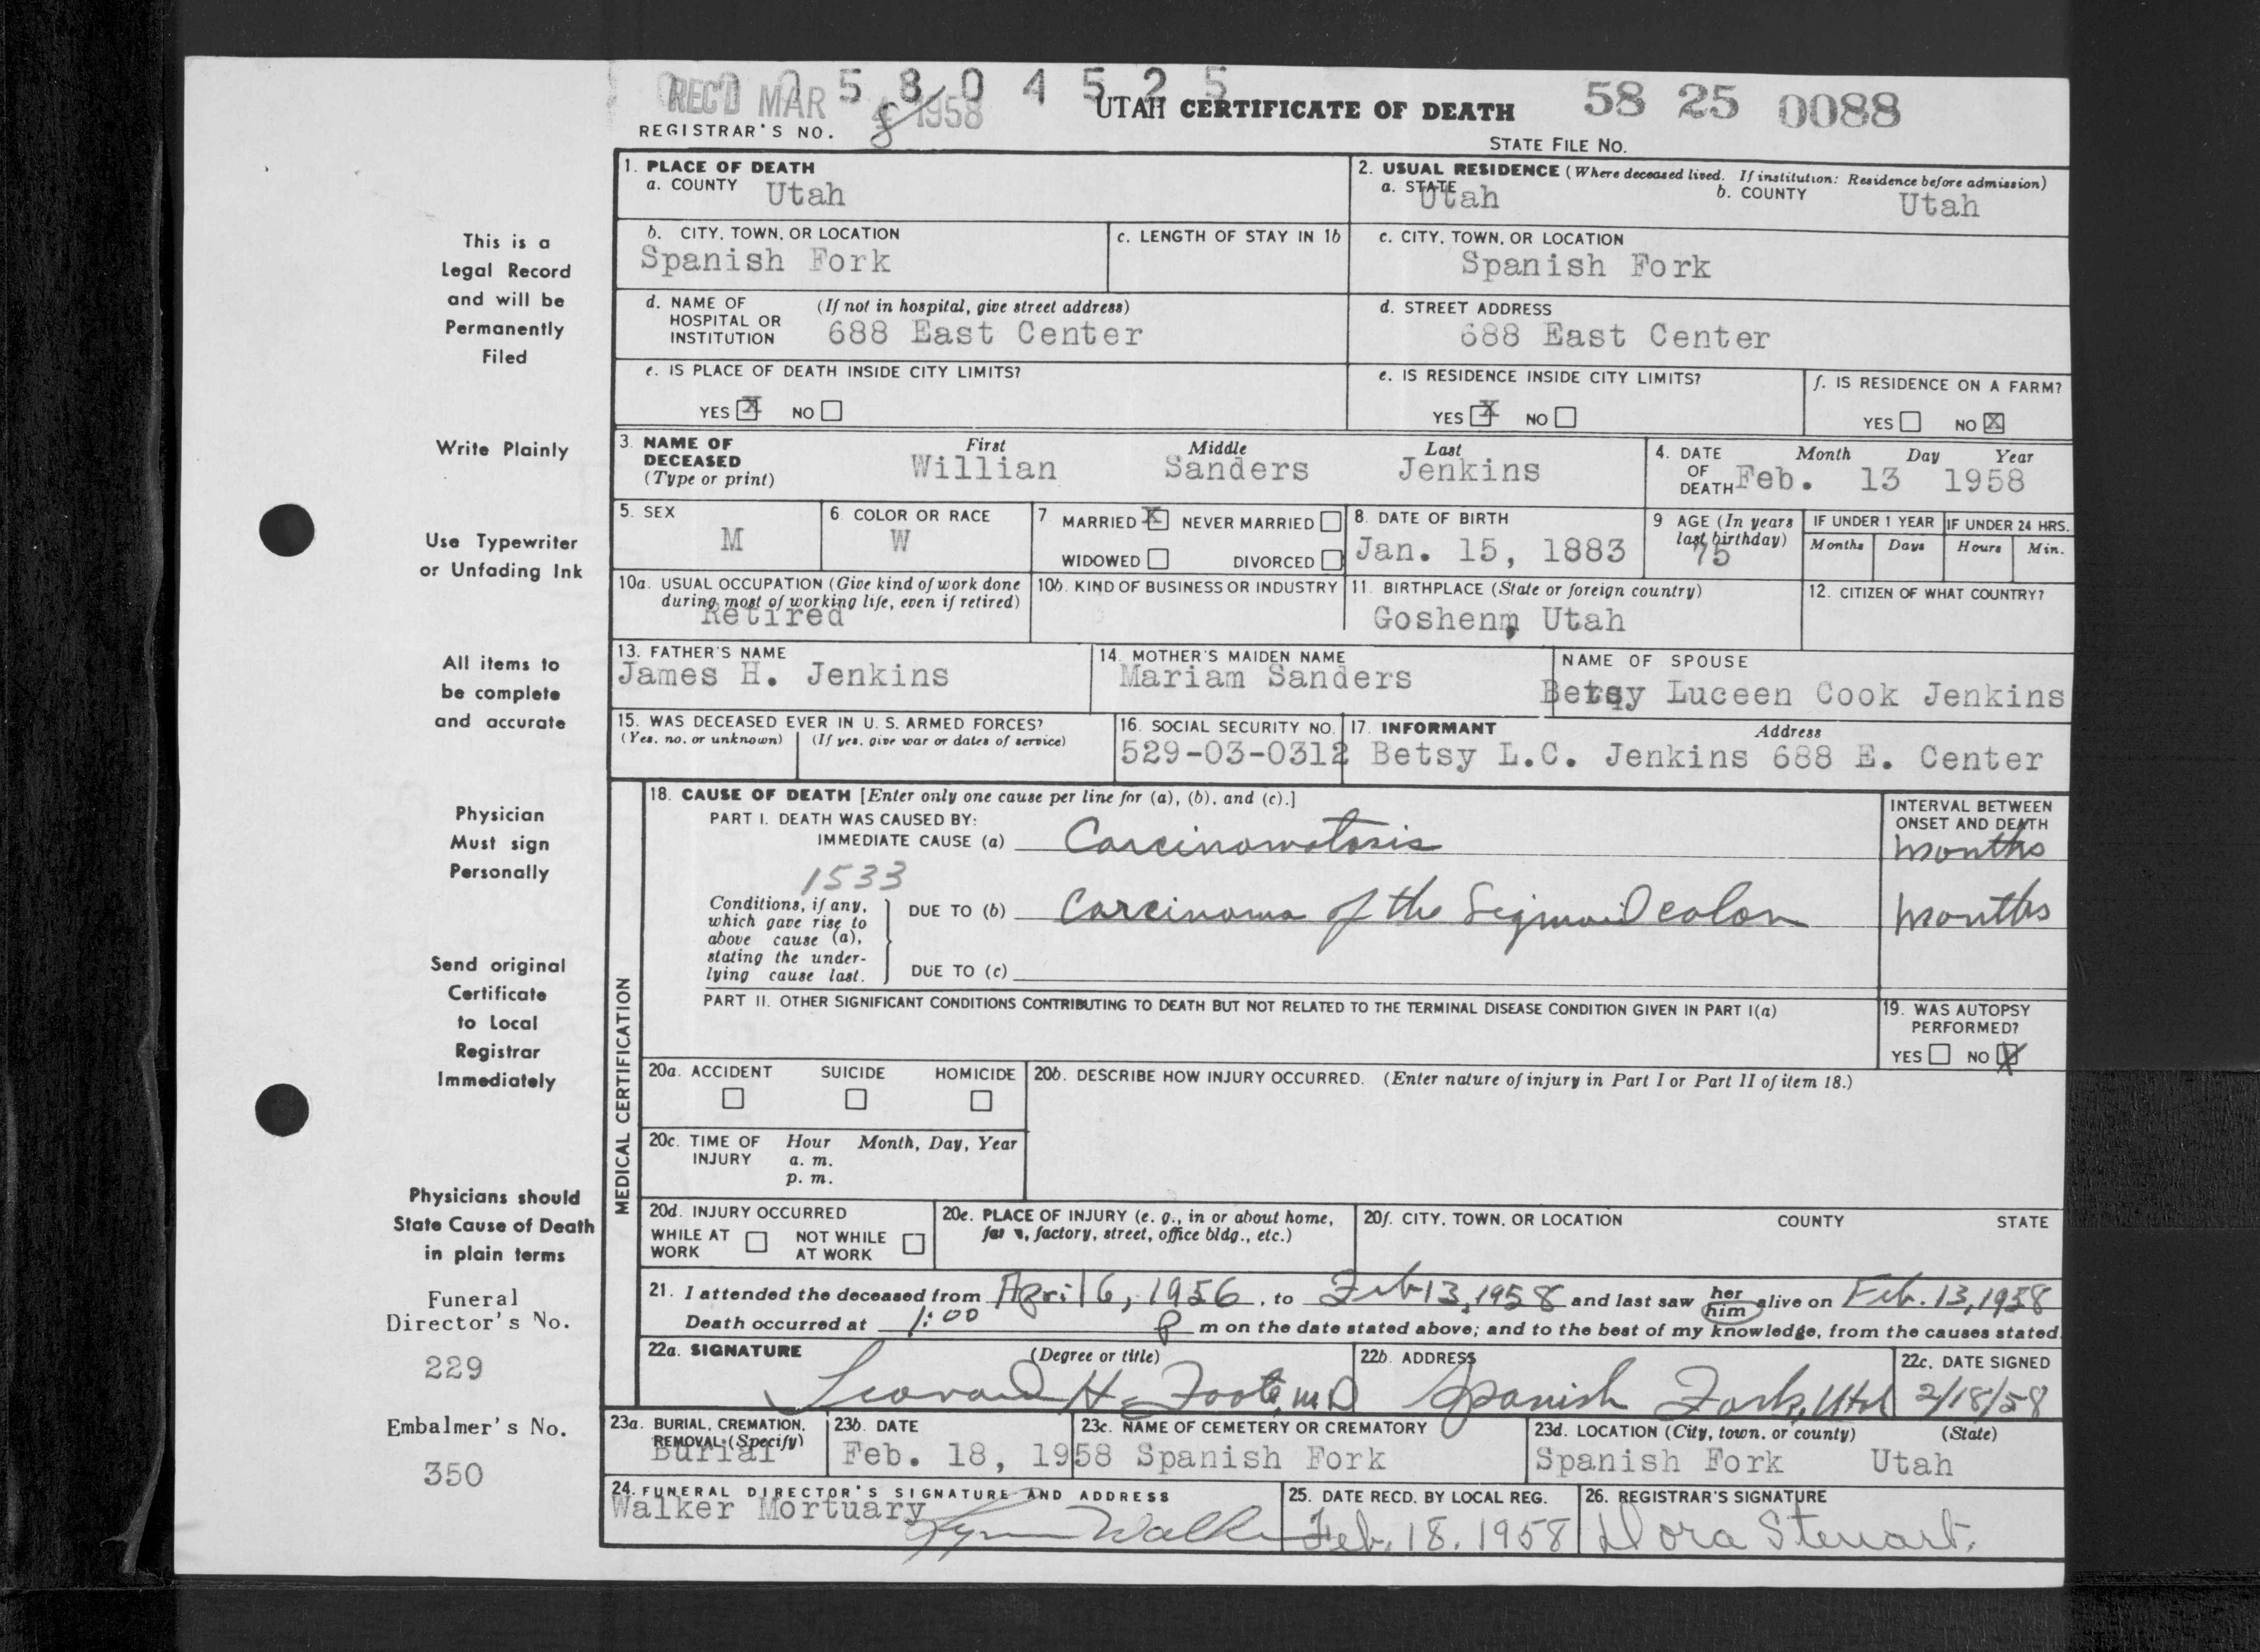 REC'D MAR 4 1958
5 8 0 4 5 2 5
UTAH CERTIFICATE OF DEATH
58 25 0088
REGISTRAR'S NO. 8
STATE FILE NO.
1. PLACE OF DEATH
a. COUNTY Utah
2. USUAL RESIDENCE (Where deceased lived. If institution: Residence before admission)
a. STATE Utah b. COUNTY Utah
b. CITY, TOWN, OR LOCATION
Spanish Fork
c. LENGTH OF STAY IN 1b
c. CITY, TOWN, OR LOCATION
Spanish Fork
d. NAME OF HOSPITAL OR INSTITUTION (If not in hospital, give street address)
688 East Center
d. STREET ADDRESS
688 East Center
e. IS PLACE OF DEATH INSIDE CITY LIMITS?
YES X NO
e. IS RESIDENCE INSIDE CITY LIMITS?
YES X NO
f. IS RESIDENCE ON A FARM?
YES NO X
3. NAME OF DECEASED (Type or print)
First Middle Last
Willian Sanders Jenkins
4. DATE OF DEATH Month Day Year
Feb. 13 1958
5. SEX
M
6. COLOR OR RACE
W
7. MARRIED X NEVER MARRIED
WIDOWED DIVORCED
8. DATE OF BIRTH
Jan. 15, 1883
9 AGE (In years last birthday)
75
IF UNDER 1 YEAR
Months Days
IF UNDER 24 HRS.
Hours Min.
10a. USUAL OCCUPATION (Give kind of work done during most of working life, even if retired)
Retired
10b. KIND OF BUSINESS OR INDUSTRY
11. BIRTHPLACE (State or foreign country)
Goshenm, Utah
12. CITIZEN OF WHAT COUNTRY?
13. FATHER'S NAME
James H. Jenkins
14. MOTHER'S MAIDEN NAME
Mariam Sanders
NAME OF SPOUSE
Betsy Luceen Cook Jenkins
15. WAS DECEASED EVER IN U. S. ARMED FORCES?
(Yes, no, or unknown) (If yes, give war or dates of service)
16. SOCIAL SECURITY NO.
529-03-0312
17. INFORMANT Address
Betsy L.C. Jenkins 688 E. Center
MEDICAL CERTIFICATION
18. CAUSE OF DEATH [Enter only one cause per line for (a), (b), and (c).]
INTERVAL BETWEEN ONSET AND DEATH
PART I. DEATH WAS CAUSED BY:
IMMEDIATE CAUSE (a) Carcinomatosis months
1533
Conditions, if any, which gave rise to above cause (a), stating the underlying cause last.
DUE TO (b) Carcinoma of the Sigmoid colon months
DUE TO (c)
PART II. OTHER SIGNIFICANT CONDITIONS CONTRIBUTING TO DEATH BUT NOT RELATED TO THE TERMINAL DISEASE CONDITION GIVEN IN PART I(a)
19. WAS AUTOPSY PERFORMED?
YES NO X
20a. ACCIDENT SUICIDE HOMICIDE
20b. DESCRIBE HOW INJURY OCCURRED. (Enter nature of injury in Part I or Part II of item 18.)
20c. TIME OF INJURY Hour Month, Day, Year
a. m.
p. m.
20d. INJURY OCCURRED
WHILE AT WORK NOT WHILE AT WORK
20e. PLACE OF INJURY (e. g., in or about home, farm, factory, street, office bldg., etc.)
20f. CITY, TOWN, OR LOCATION COUNTY STATE
21. I attended the deceased from April 6, 1956, to Feb 13, 1958 and last saw her him alive on Feb. 13, 1958
Death occurred at 1:00 P m on the date stated above; and to the best of my knowledge, from the causes stated.
22a. SIGNATURE (Degree or title)
Leonard H. Foote, M D
22b. ADDRESS
Spanish Fork, Utah
22c. DATE SIGNED
2/18/58
23a. BURIAL, CREMATION, REMOVAL (Specify)
Burial
23b. DATE
Feb. 18, 1958
23c. NAME OF CEMETERY OR CREMATORY
Spanish Fork
23d. LOCATION (City, town, or county) (State)
Spanish Fork Utah
24. FUNERAL DIRECTOR'S SIGNATURE AND ADDRESS
Walker Mortuary
25. DATE RECD. BY LOCAL REG.
Feb. 18, 1958
26. REGISTRAR'S SIGNATURE
Dora Stewart.
This is a
Legal Record
and will be
Permanently
Filed
Write Plainly
Use Typewriter
or Unfading Ink
All items to
be complete
and accurate
Physician
Must sign
Personally
Send original
Certificate
to Local
Registrar
Immediately
Physicians should
State Cause of Death
in plain terms
Funeral
Director's No.
229
Embalmer's No.
350